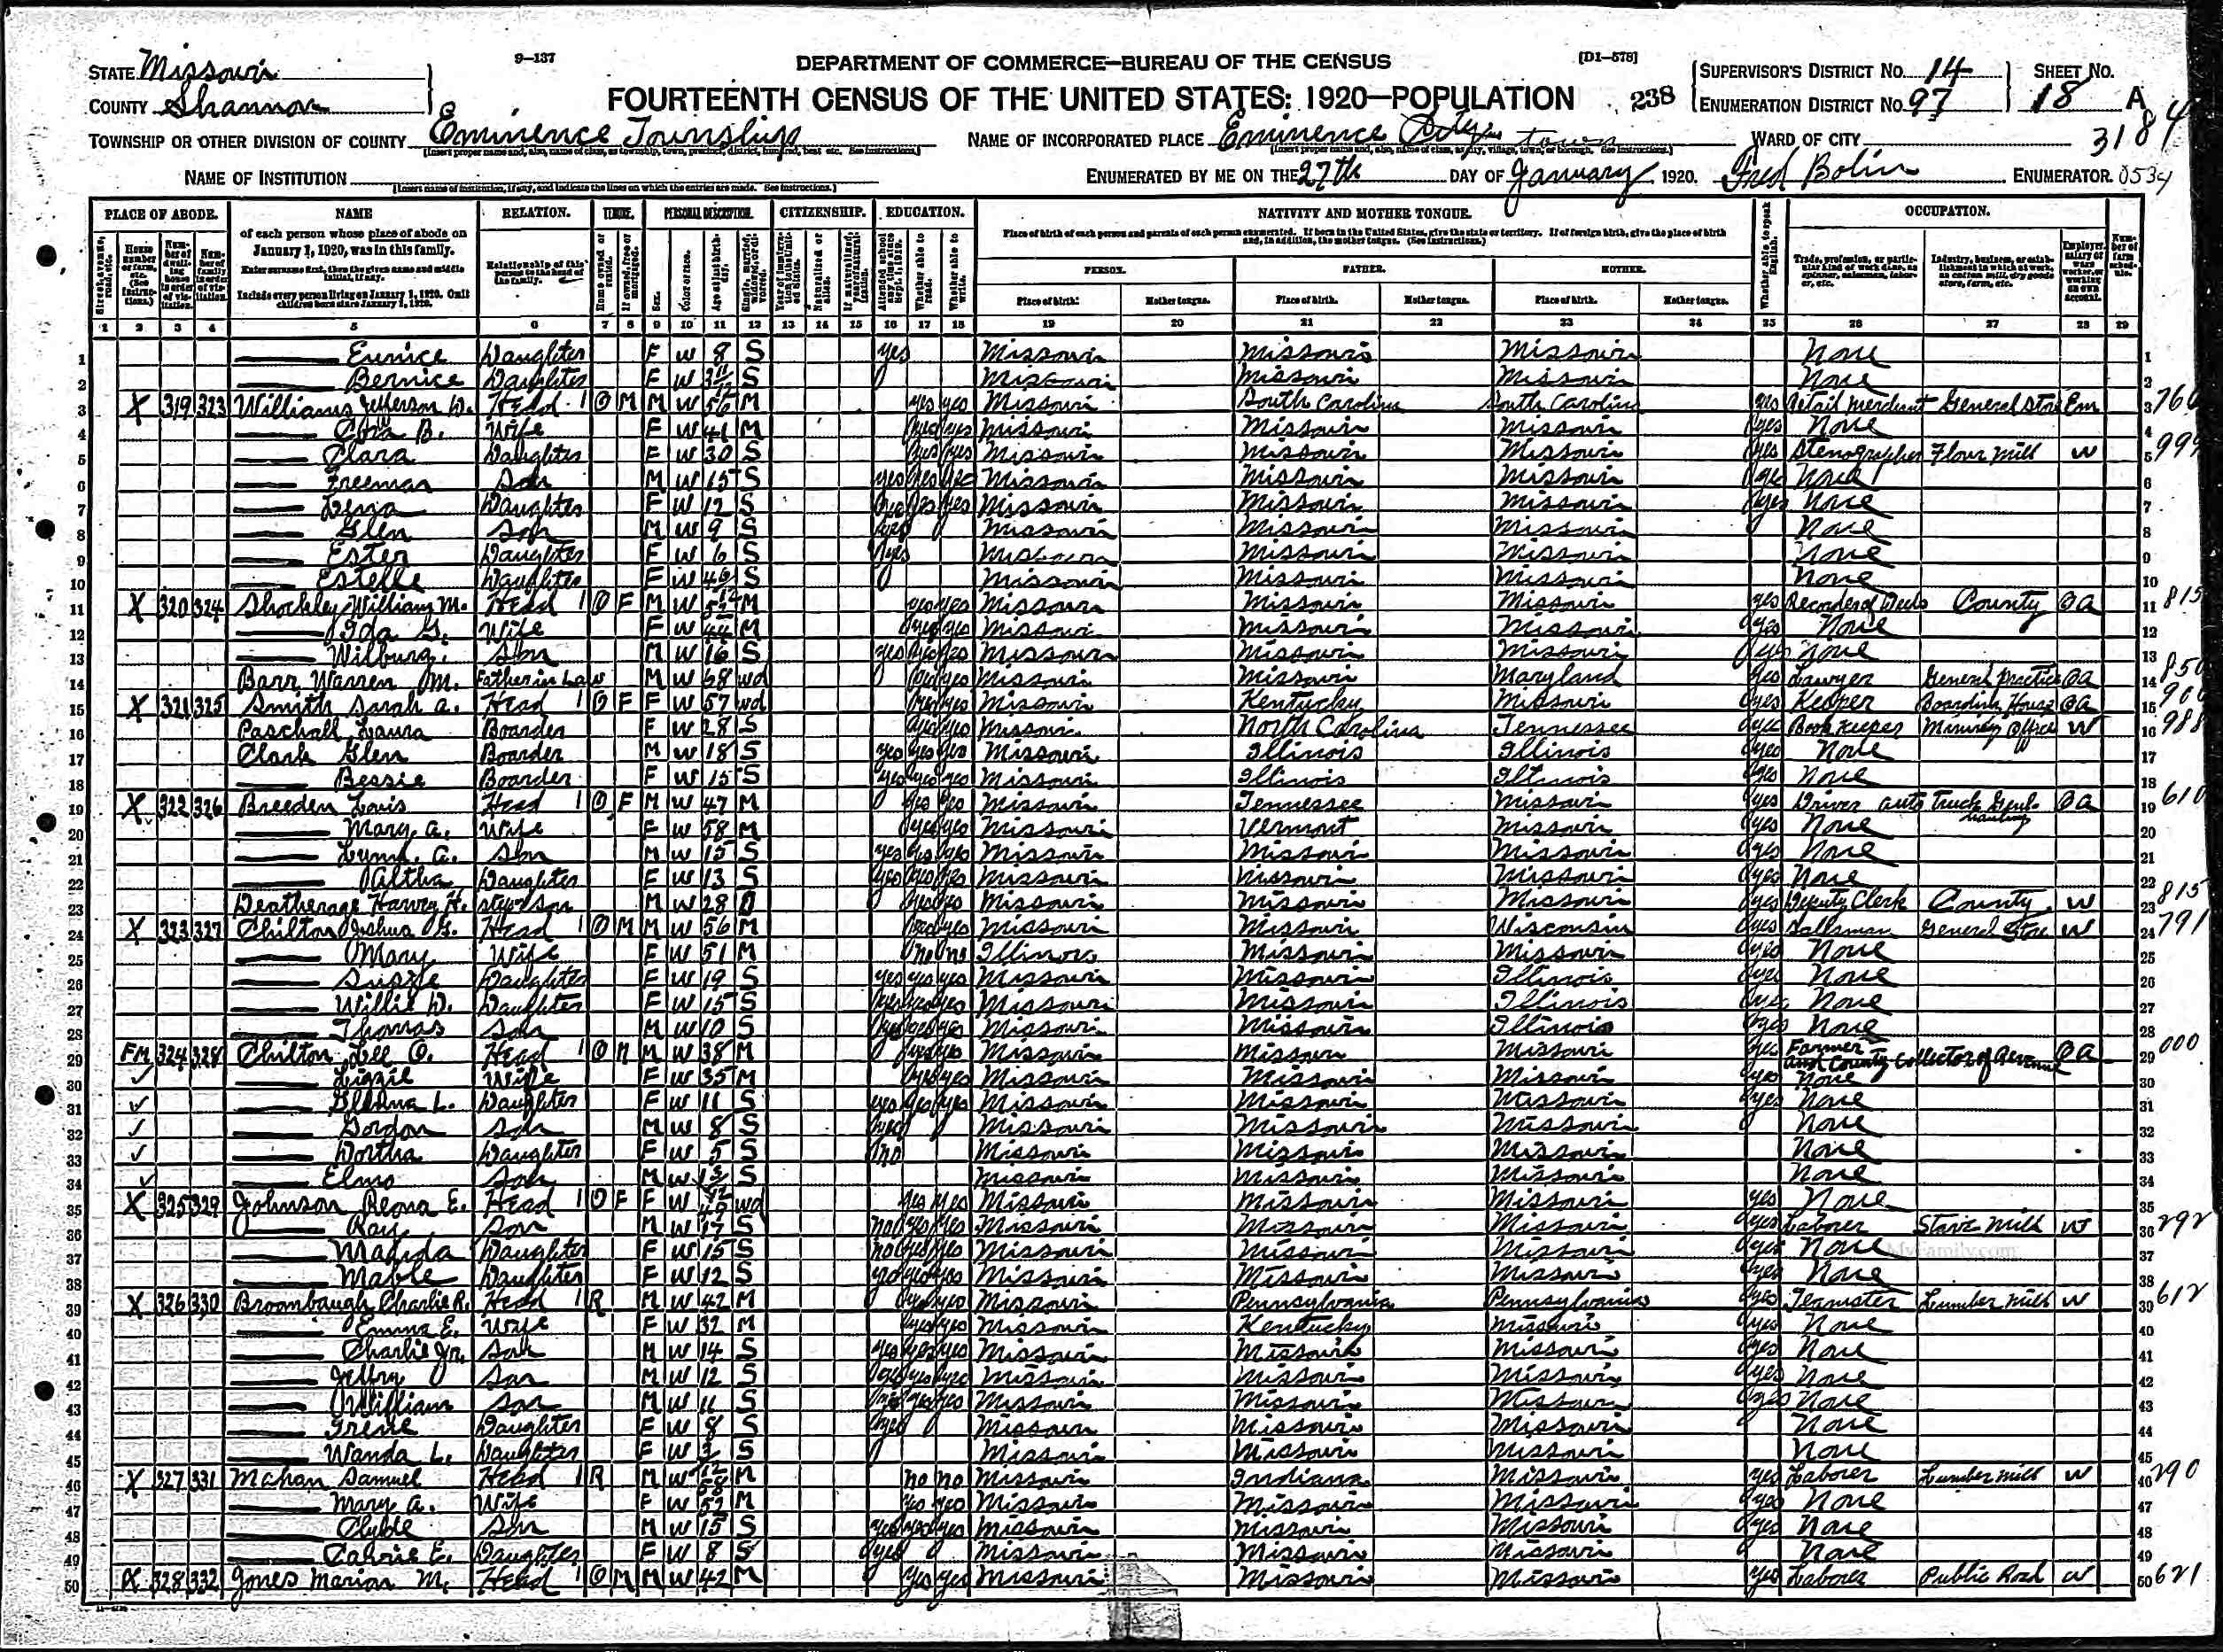 9-137 DEPARTMENT OF COMMERCE—BUREAU OF THE CENSUS [D1-578]
STATE Missouri SUPERVISOR'S DISTRICT NO. 14 SHEET NO.
COUNTY Shannon FOURTEENTH CENSUS OF THE UNITED STATES: 1920—POPULATION 238 ENUMERATION DISTRICT NO. 97 18 A
TOWNSHIP OR OTHER DIVISION OF COUNTY Eminence Township NAME OF INCORPORATED PLACE Eminence City town WARD OF CITY 3184
NAME OF INSTITUTION ENUMERATED BY ME ON THE 27th DAY OF January, 1920. Fred Bolin ENUMERATOR. 0534
PLACE OF ABODE. NAME RELATION. TENURE. PERSONAL DESCRIPTION. CITIZENSHIP. EDUCATION. NATIVITY AND MOTHER TONGUE. OCCUPATION.
of each person whose place of abode on January 1, 1920, was in this family.
Enter surname first, then the given name and middle initial, if any.
Include every person living on January 1, 1920. Omit children born since January 1, 1920.
Relationship of this person to the head of the family.
Place of birth of each person and parents of each person enumerated. If born in the United States, give the state or territory. If of foreign birth, give the place of birth and, in addition, the mother tongue. (See Instructions.)
PERSON. FATHER. MOTHER.
Place of birth. Mother tongue. Place of birth. Mother tongue. Place of birth. Mother tongue.
1 2 3 4 5 6 7 8 9 10 11 12 13 14 15 16 17 18 19 20 21 22 23 24 25 26 27 28 29
1 Eunice Daughter F W 8 S yes Missouri Missouri Missouri None 1
2 Bernice Daughter F W S Missouri Missouri Missouri None 2
3 X 319 323 Williams Jefferson D. Head 1 O M M W 56 M yes yes Missouri South Carolina South Carolina yes Retail Merchant General Store Em 3 760
4 Cora B. Wife F W 41 M yes yes Missouri Missouri Missouri yes None 4
5 Clara Daughter F W 30 S yes yes Missouri Missouri Missouri yes Stenographer Flour Mill W 5 999
6 Freeman Son M W 15 S yes yes yes Missouri Missouri Missouri yes None 6
7 Lena Daughter F W 12 S yes yes yes Missouri Missouri Missouri yes None 7
8 Glen Son M W 9 S yes Missouri Missouri Missouri None 8
9 Ester Daughter F W 6 S yes Missouri Missouri Missouri None 9
10 Estelle Daughter F W S Missouri Missouri Missouri None 10
11 X 320 324 Shockley William M. Head 1 O F M W M yes yes Missouri Missouri Missouri yes Recorder of Deeds County OA 11 815
12 Ida G. Wife F W 44 M yes yes Missouri Missouri Missouri yes None 12
13 Wilburg. Son M W 16 S yes yes yes Missouri Missouri Missouri yes None 13
14 Barr, Warren M. Father in Law M W 68 wd yes yes Missouri Missouri Maryland yes Lawyer General practice OA 14 850
15 X 321 325 Smith Sarah A. Head 1 O F F W 57 wd yes yes Missouri Kentucky Missouri yes Keeper Boarding House OA 15 900
16 Paschall Laura Boarder F W 28 S yes yes Missouri North Carolina Tennessee yes Book Keeper Mining Office W 16 988
17 Clark Glen Boarder M W 18 S yes yes yes Missouri Illinois Illinois yes None 17
18 Bessie Boarder F W 15 S yes yes yes Missouri Illinois Illinois yes None 18
19 X 322 326 Breeden Louis Head 1 O F M W 47 M yes yes Missouri Tennessee Missouri yes Driver auto Truck Genl. hauling OA 19 610
20 Mary A. Wife F W 58 M yes yes Missouri Vermont Missouri yes None 20
21 Lynn. A. Son M W 15 S yes yes yes Missouri Missouri Missouri yes None 21
22 Altha Daughter F W 13 S yes yes yes Missouri Missouri Missouri yes None 22
23 Deatherage Harvey H. step son M W 28 D yes yes Missouri Missouri Missouri yes Deputy Clerk County W 23 815
24 X 323 327 Chilton Joshua G. Head 1 O M M W 56 M yes yes Missouri Missouri Wisconsin yes Salesman General Store W 24 791
25 Mary Wife F W 51 M no no Illinois Missouri Missouri yes None 25
26 Susie Daughter F W 19 S yes yes yes Missouri Missouri Illinois yes None 26
27 Willie D. Daughter F W 15 S yes yes yes Missouri Missouri Illinois yes None 27
28 Thomas Son M W 10 S yes yes yes Missouri Missouri Illinois yes None 28
29 FM 324 328 Chilton Lee O. Head 1 O M W 38 M yes yes Missouri Missouri Missouri yes Farmer and County Collector of Revenue OA 29 000
30 Lizzie Wife F W 35 M yes yes Missouri Missouri Missouri yes None 30
31 L. Daughter F W 11 S yes yes yes Missouri Missouri Missouri yes None 31
32 Gordon Son M W 8 S yes Missouri Missouri Missouri None 32
33 Dortha Daughter F W 5 S no Missouri Missouri Missouri None 33
34 Elmo Son M W S Missouri Missouri Missouri None 34
35 X 325 329 Johnson Reona E. Head 1 O F F W 49 wd yes yes Missouri Missouri Missouri yes None 35
36 Ray Son M W 17 S no yes yes Missouri Missouri Missouri yes Laborer Stave Mill W 36 292
37 Daughter F W 15 S no yes yes Missouri Missouri Missouri yes None MyFamily.com 37
38 Mable Daughter F W 12 S no yes yes Missouri Missouri Missouri yes None 38
39 X 326 330 Broombaugh Charlie R. Head 1 R M W 42 M yes yes Missouri Pennsylvania Pennsylvania yes Teamster Lumber Mill W 39 612
40 Emma E. Wife F W 32 M yes yes Missouri Kentucky Missouri yes None 40
41 Charlie Jr. Son M W 14 S yes yes yes Missouri Missouri Missouri yes None 41
42 Jeffry Son M W 12 S yes yes yes Missouri Missouri Missouri yes None 42
43 William Son M W 11 S yes yes yes Missouri Missouri Missouri yes None 43
44 Irene Daughter F W 8 S yes Missouri Missouri Missouri None 44
45 Wanda L. Daughter F W S Missouri Missouri Missouri None 45
46 X 327 331 Mahan Samuel Head 1 R M W 58 M no no Missouri Indiana Missouri yes Laborer Lumber Mill W 46 290
47 Mary A. Wife F W M yes yes Missouri Missouri Missouri yes None 47
48 Clyde Son M W 15 S yes yes yes Missouri Missouri Missouri yes None 48
49 Carrie E. Daughter F W 8 S yes Missouri Missouri Missouri None 49
50 X 328 332 Jones Marion M. Head 1 O M M W 42 M yes yes Missouri Missouri Missouri yes Laborer Public Road W 50 621